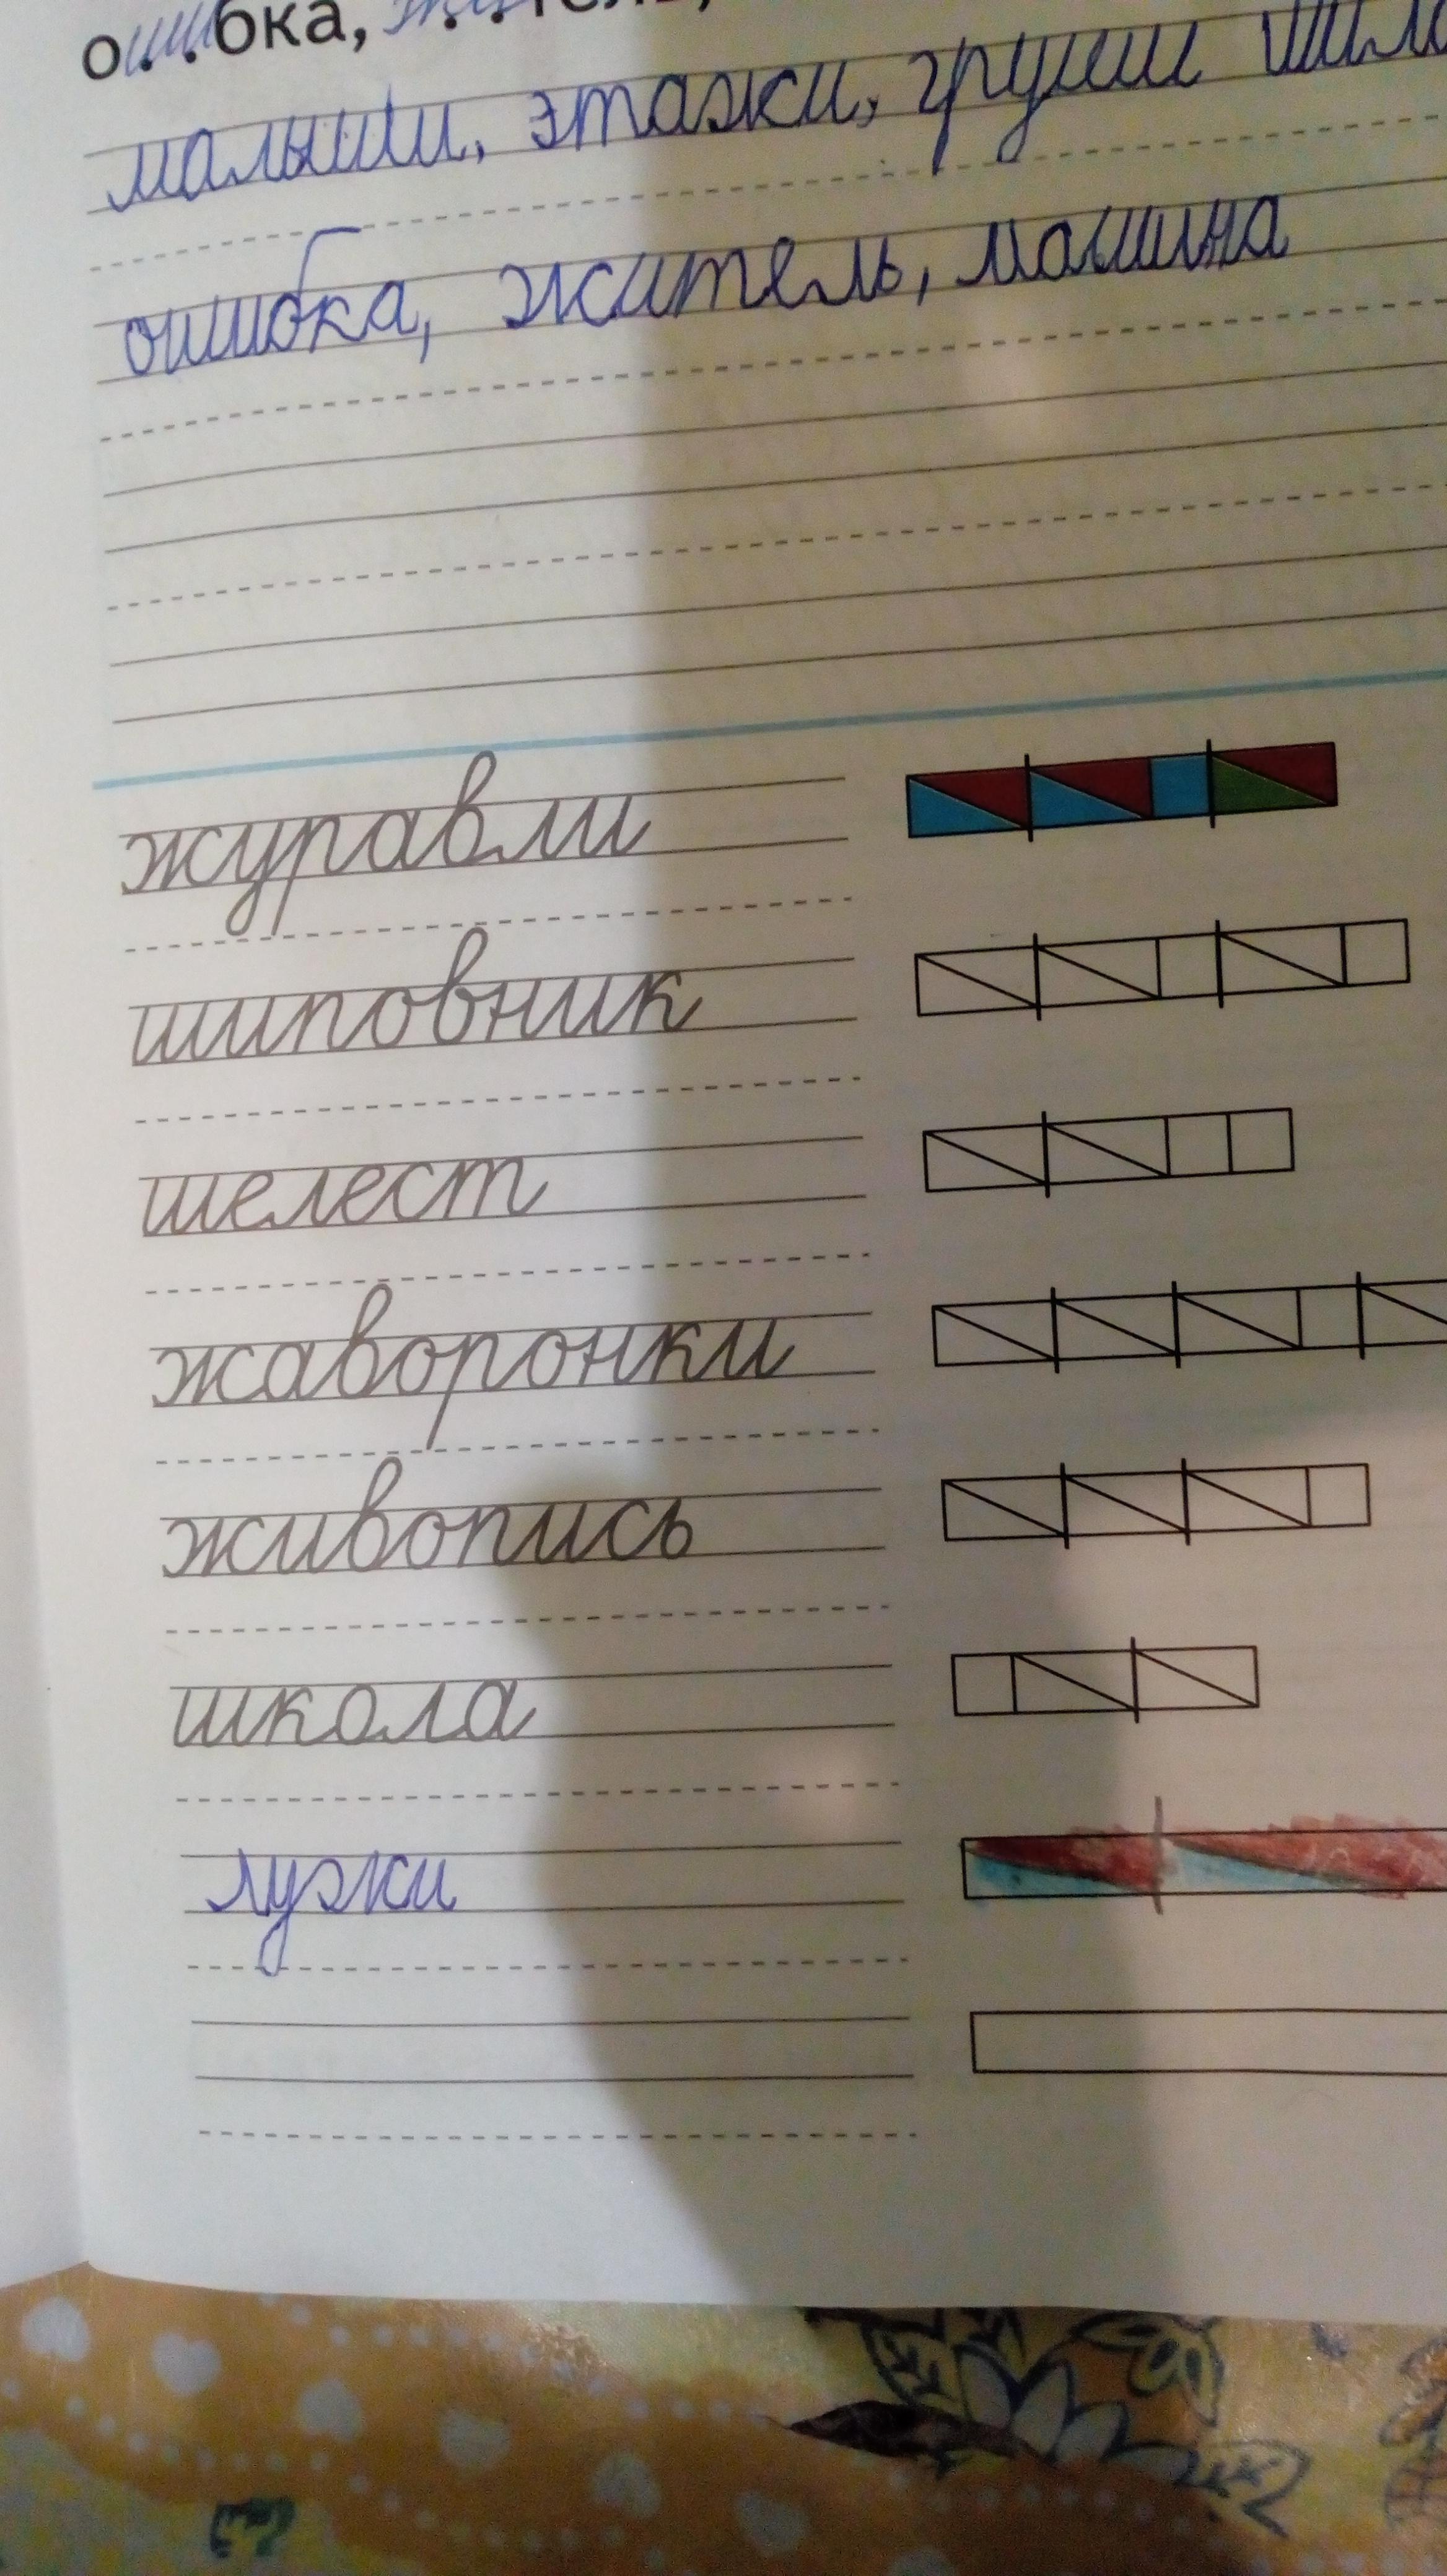 ошибка,
малыши, этажи, груши
ошибка, житель, машина
журавли
шиповник
шелест
жаворонки
живопись
школа
лужи